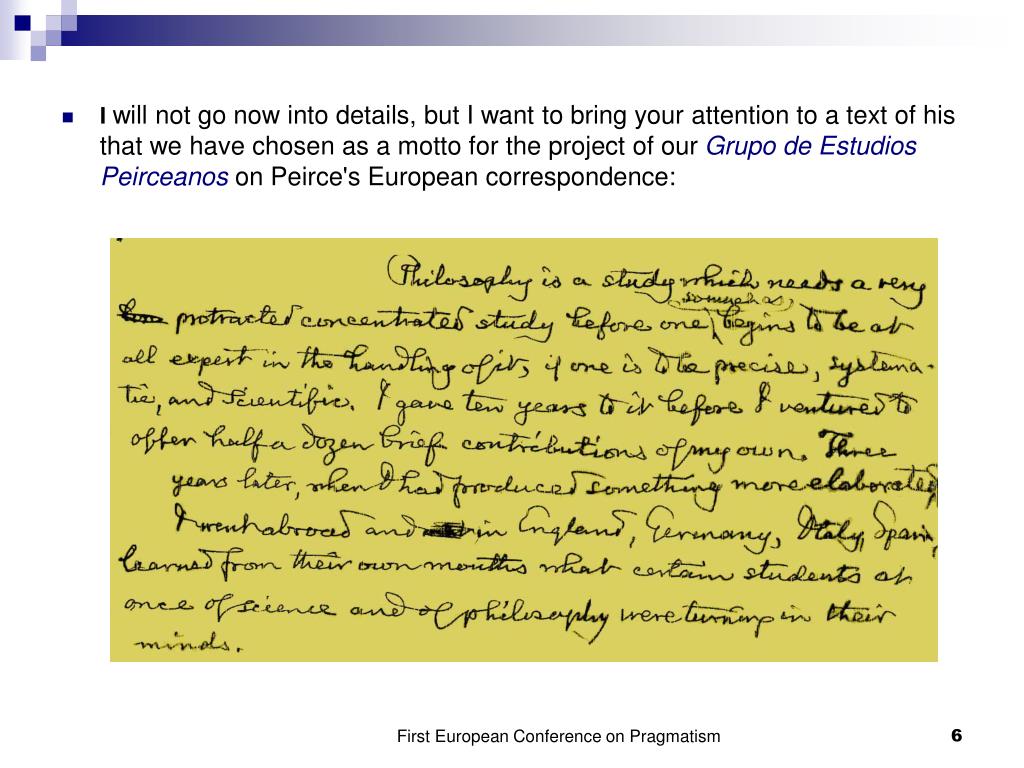 I will not go now into details, but I want to bring your attention to a text of his
that we have chosen as a motto for the project of our Grupo de Estudios
Peirceanos on Peirce's European correspondence:
(Philosophy is a study which needs a very
protracted concentrated study before one
so much as
begins to be at
all expert in the handling of it, if one is to be precise, systema-
tic, and scientific. I gave ten years to it before I ventured to
offer half a dozen brief contributions of my own. Three
years later, when I had produced something more elaborated,
I went abroad and in England, Germany, Italy, Spain,
learned from their own mouths what certain students at
once of science and of philosophy were turning in their
minds.
First European Conference on Pragmatism
6